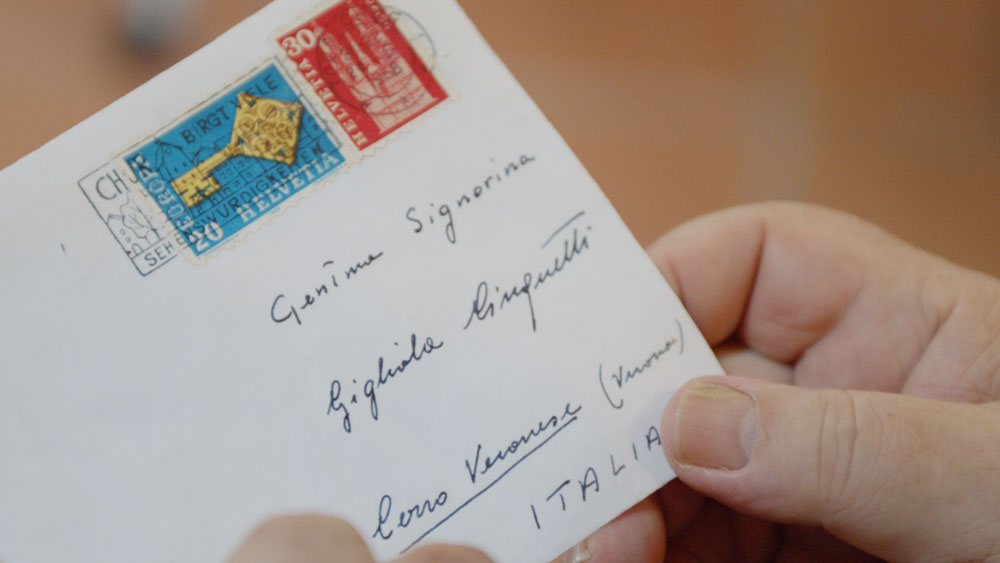 30
HELVETIA
CHUR BIRGT VIELE
SEHENSWÜRDIGKEITEN
EUROPA
20 HELVETIA
Gen.ma Signorina
Gigliola Cinquetti
Cerro Veronese (Verona)
ITALIA